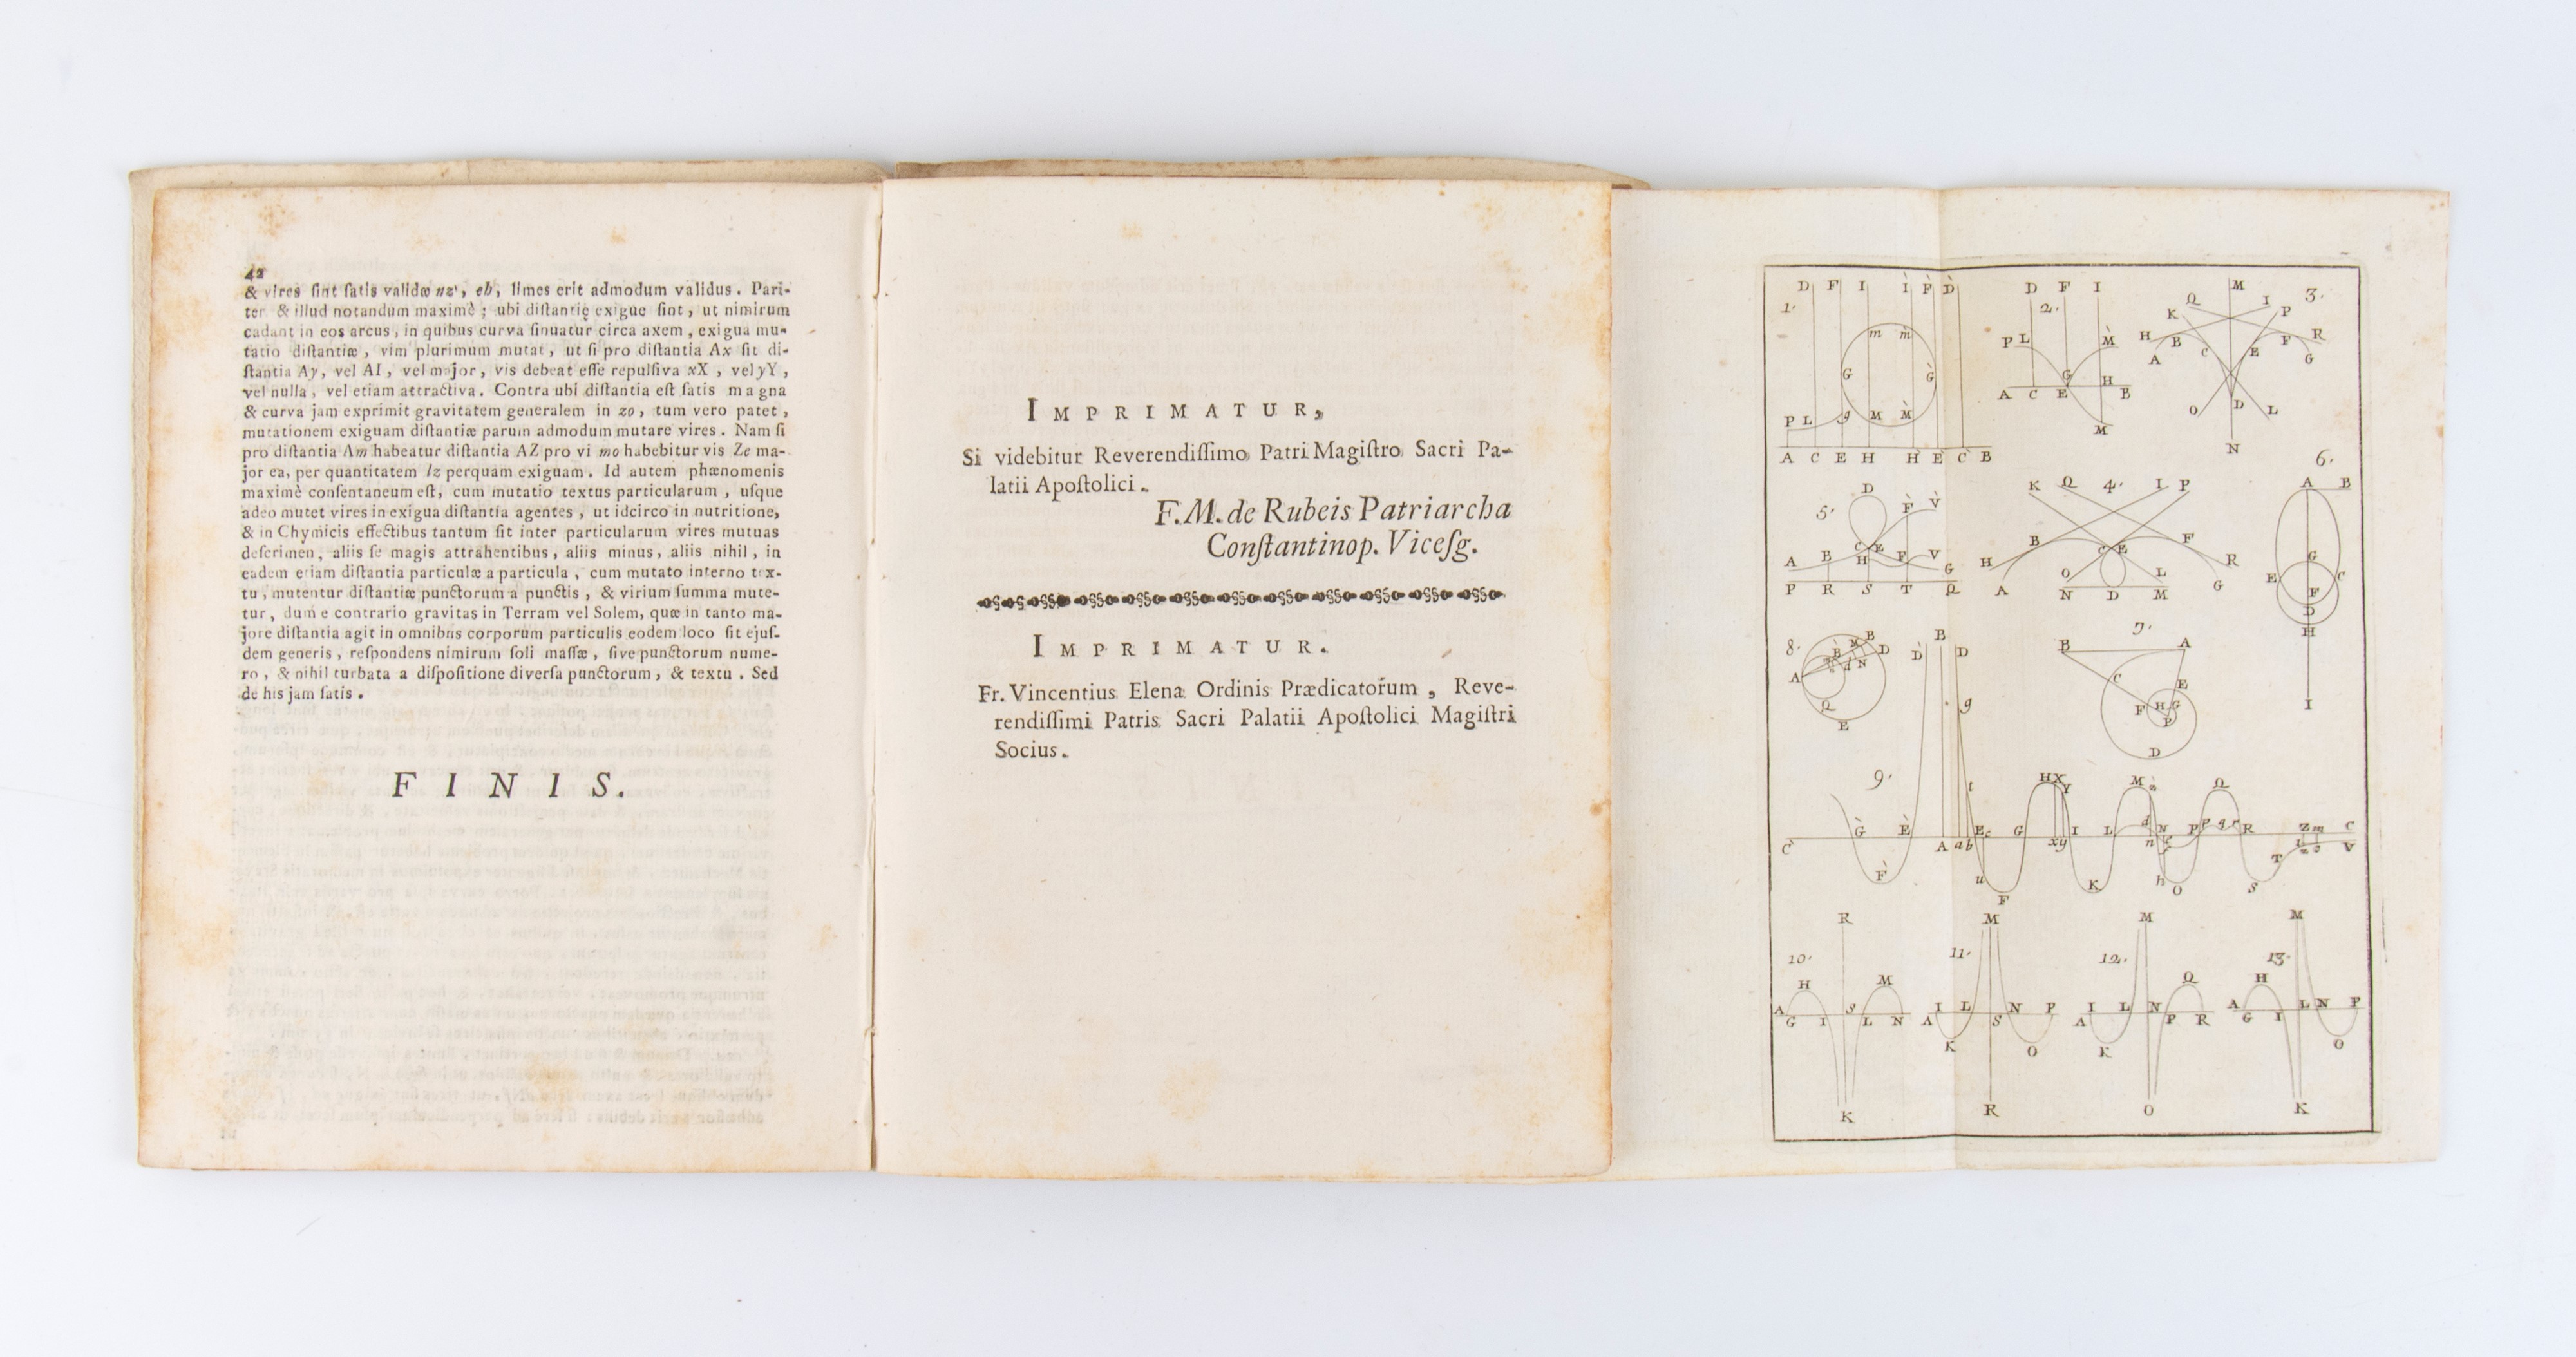 42
& vires ſint ſatis validæ nz, eh, limes erit admodum validus. Pari-
ter & illud notandum maximè; ubi diſtantię exigue ſint, ut nimirum
cadant in eos arcus, in quibus curva ſinuatur circa axem, exigua mu-
tatio diſtantiæ, vim plurimum mutat, ut ſi pro diſtantia Ax ſit di-
ſtantia Ay, vel AI, vel major, vis debeat eſſe repulſiva xX, vel yY,
vel nulla, vel etiam attractiva. Contra ubi diſtantia eſt ſatis magna
& curva jam exprimit gravitatem generalem in zo, tum vero patet,
mutationem exiguam diſtantiæ parum admodum mutare vires. Nam ſi
pro diſtantia Am habeatur diſtantia AZ pro vi mo habebitur vis Ze ma-
jor ea, per quantitatem lz perquam exiguam. Id autem phænomenis
maximè conſentaneum eſt, cum mutatio textus particularum, uſque
adeo mutet vires in exigua diſtantia agentes, ut idcirco in nutritione,
& in Chymicis effectibus tantum ſit inter particularum vires mutuas
deſcrimen, aliis ſe magis attrahentibus, aliis minus, aliis nihil, in
eadem etiam diſtantia particulæ a particula, cum mutato interno tex-
tu, mutentur diſtantiæ punctorum a punctis, & virium ſumma mute-
tur, dum e contrario gravitas in Terram vel Solem, quæ in tanto ma-
jore diſtantia agit in omnibus corporum particulis eodem loco ſit ejuſ-
dem generis, reſpondens nimirum ſoli maſſæ, ſive punctorum nume-
ro, & nihil turbata a diſpoſitione diverſa punctorum, & textu. Sed
de his jam ſatis.
FINIS.
IMPRIMATUR,
Si videbitur Reverendiſſimo Patri Magiſtro Sacri Pa-
latii Apoſtolici.
F.M. de Rubeis Patriarcha
Conſtantinop. Viceſg.
IMPRIMATUR.
Fr. Vincentius Elena Ordinis Prædicatorum, Reve-
rendiſſimi Patris Sacri Palatii Apoſtolici Magiſtri
Socius.
D F I I F D
1.
m m
G G
P L g M M
A C E H H E C B
D F I
2.
P L M
G H
A C E B
M
M
3.
Q I
K P
H B C E F R
A G
O D L
N
D
5.
F V
A B C E F V
H G
P R S T Q
K Q 4. I P
H B C E F R
O L
A N D M G
6.
A B
G
E C
F
D
H
I
8.
B
M
D
A
Q
E
7.
B A
C E
F H G
P
D
B
D D
g
t
9.
H X Y M Q
G E E G I L N P p q r R Z m C
C A a b x y n T V
F u F K h O S
R M M M
10. 11. 12. 13.
H M
A G I S L N
K
A I L S N P
K O
R
A I L N P Q R
K
O
A G H I L N P
O
K